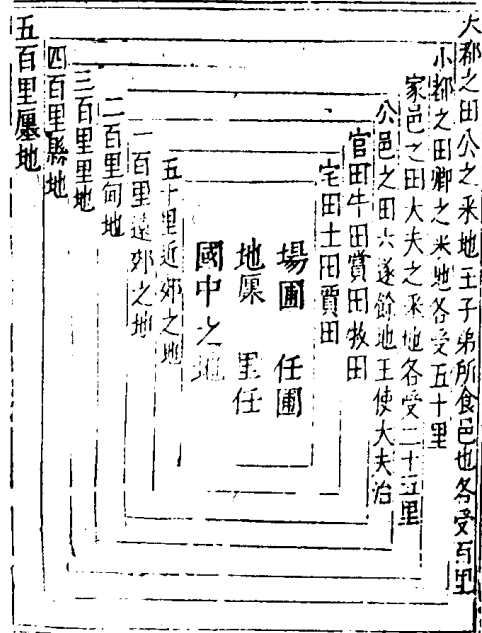 大都之田公之采地王子弟所食邑也各受百里
小都之田卿之采地各受五十里
家邑之田大夫之采地各受二十五里
公邑之田六遂餘地王使大夫治
官田牛田賞田牧田
宅田士田賈田
場圃 任圃
地廛 里任
國中之地
五十里近郊之地
一百里遠郊之地
二百里甸地
三百里里地
四百里縣地
五百里廛地